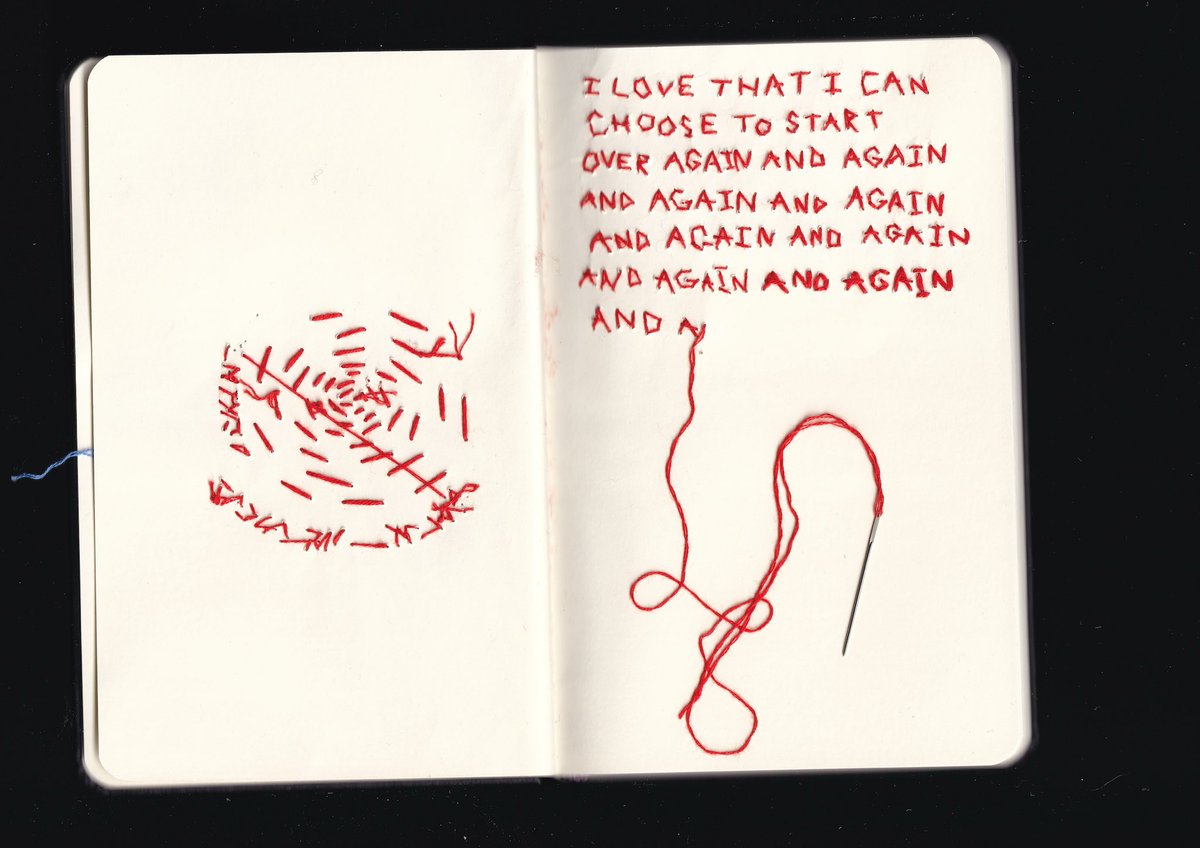 I LOVE THAT I CAN
CHOOSE TO START
OVER AGAIN AND AGAIN
AND AGAIN AND AGAIN
AND AGAIN AND AGAIN
AND AGAIN AND AGAIN
AND A